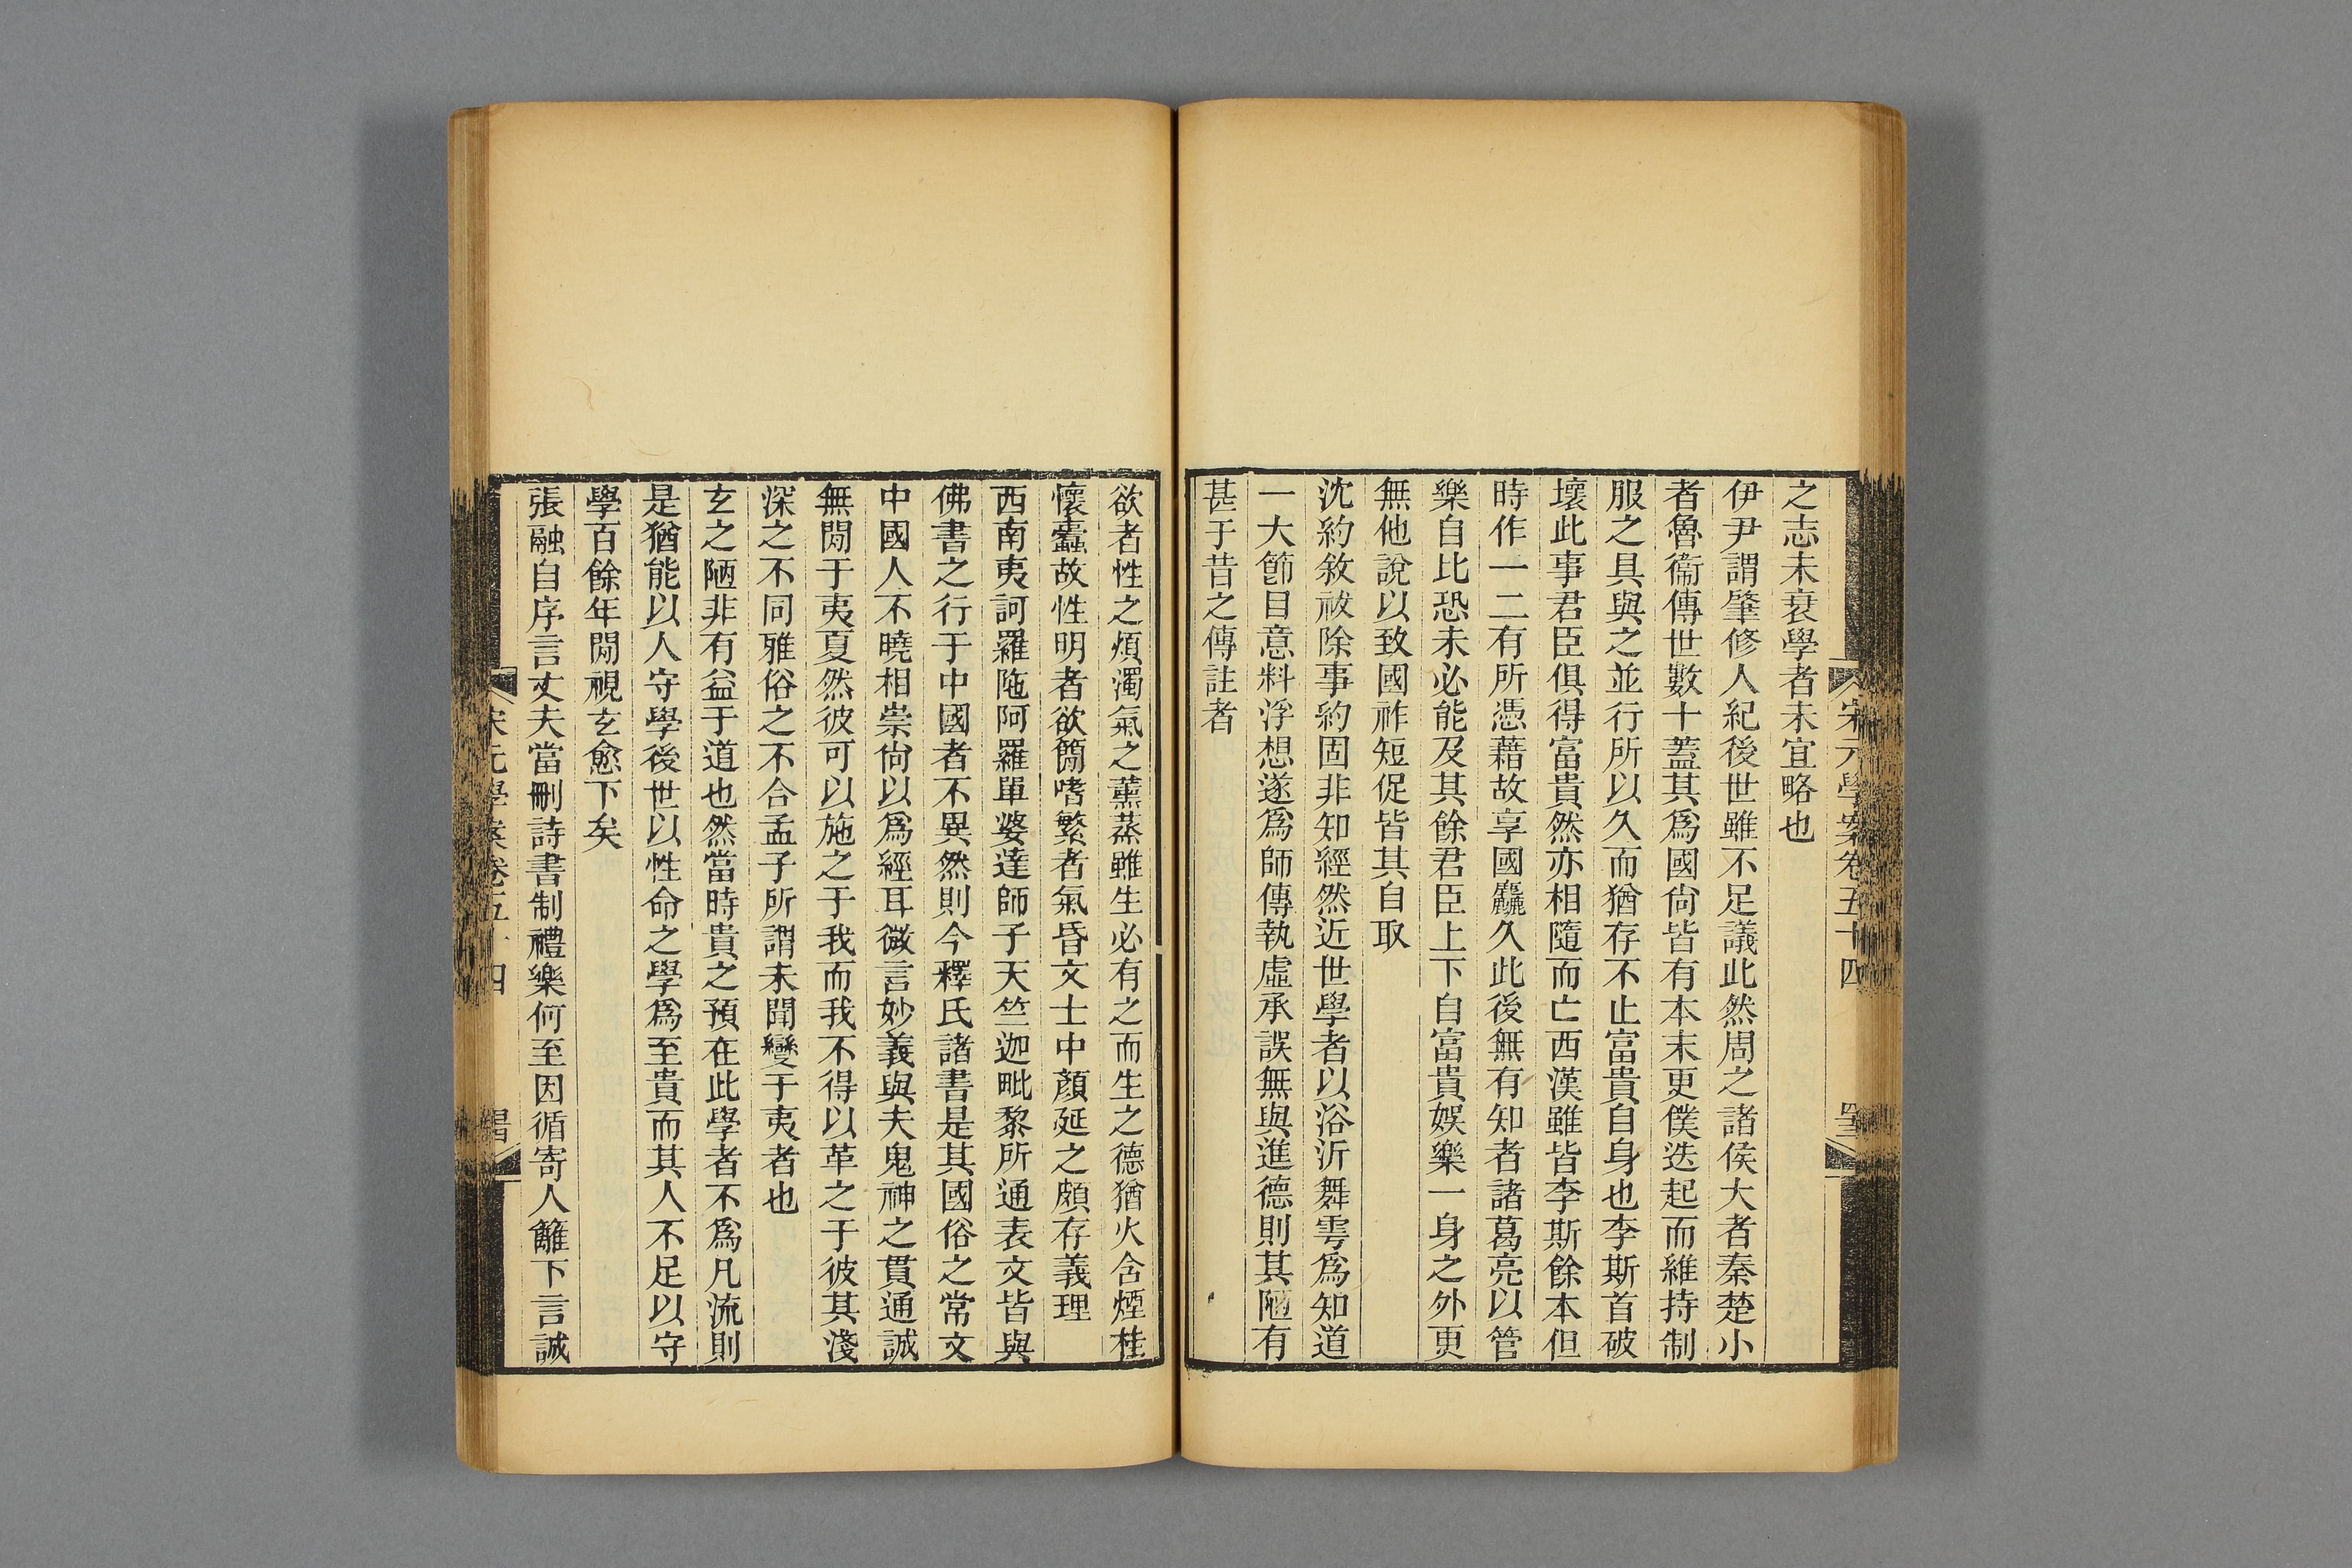 宋元學案卷五十四
之志未衰學者未宜略也
伊尹謂肇修人紀後世雖不足議此然周之諸侯大者秦楚小
者魯衞傳世數十蓋其爲國尙皆有本末更僕迭起而維持制
服之具與之並行所以久而猶存不止富貴自身也李斯首破
壞此事君臣俱得富貴然亦相隨而亡西漢雖皆李斯餘本但
時作一二有所憑藉故享國麤久此後無有知者諸葛亮以管
樂自比恐未必能及其餘君臣上下自富貴娛樂一身之外更
無他說以致國祚短促皆其自取
沈約敘祓除事約固非知經然近世學者以浴沂舞雩爲知道
一大節目意料浮想遂爲師傳執虛承誤無與進德則其陋有
甚于昔之傳註者
欲者性之煩濁氣之薰蒸雖生必有之而生之德猶火含煙桂
懷蠹故性明者欲簡嗜繁者氣昏文士中顏延之頗存義理
西南夷訶羅陁阿羅單婆達師子天竺迦毗黎所通表文皆與
佛書之行于中國者不異然則今釋氏諸書是其國俗之常文
中國人不曉相崇尙以爲經耳微言妙義與夫鬼神之貫通誠
無閒于夷夏然彼可以施之于我而我不得以革之于彼其淺
深之不同雅俗之不合孟子所謂未聞變于夷者也
玄之陋非有益于道也然當時貴之預在此學者不爲凡流則
是猶能以人守學後世以性命之學爲至貴而其人不足以守
學百餘年閒視玄愈下矣
張融自序言丈夫當刪詩書制禮樂何至因循寄人籬下言誠
宋元學案卷五十四